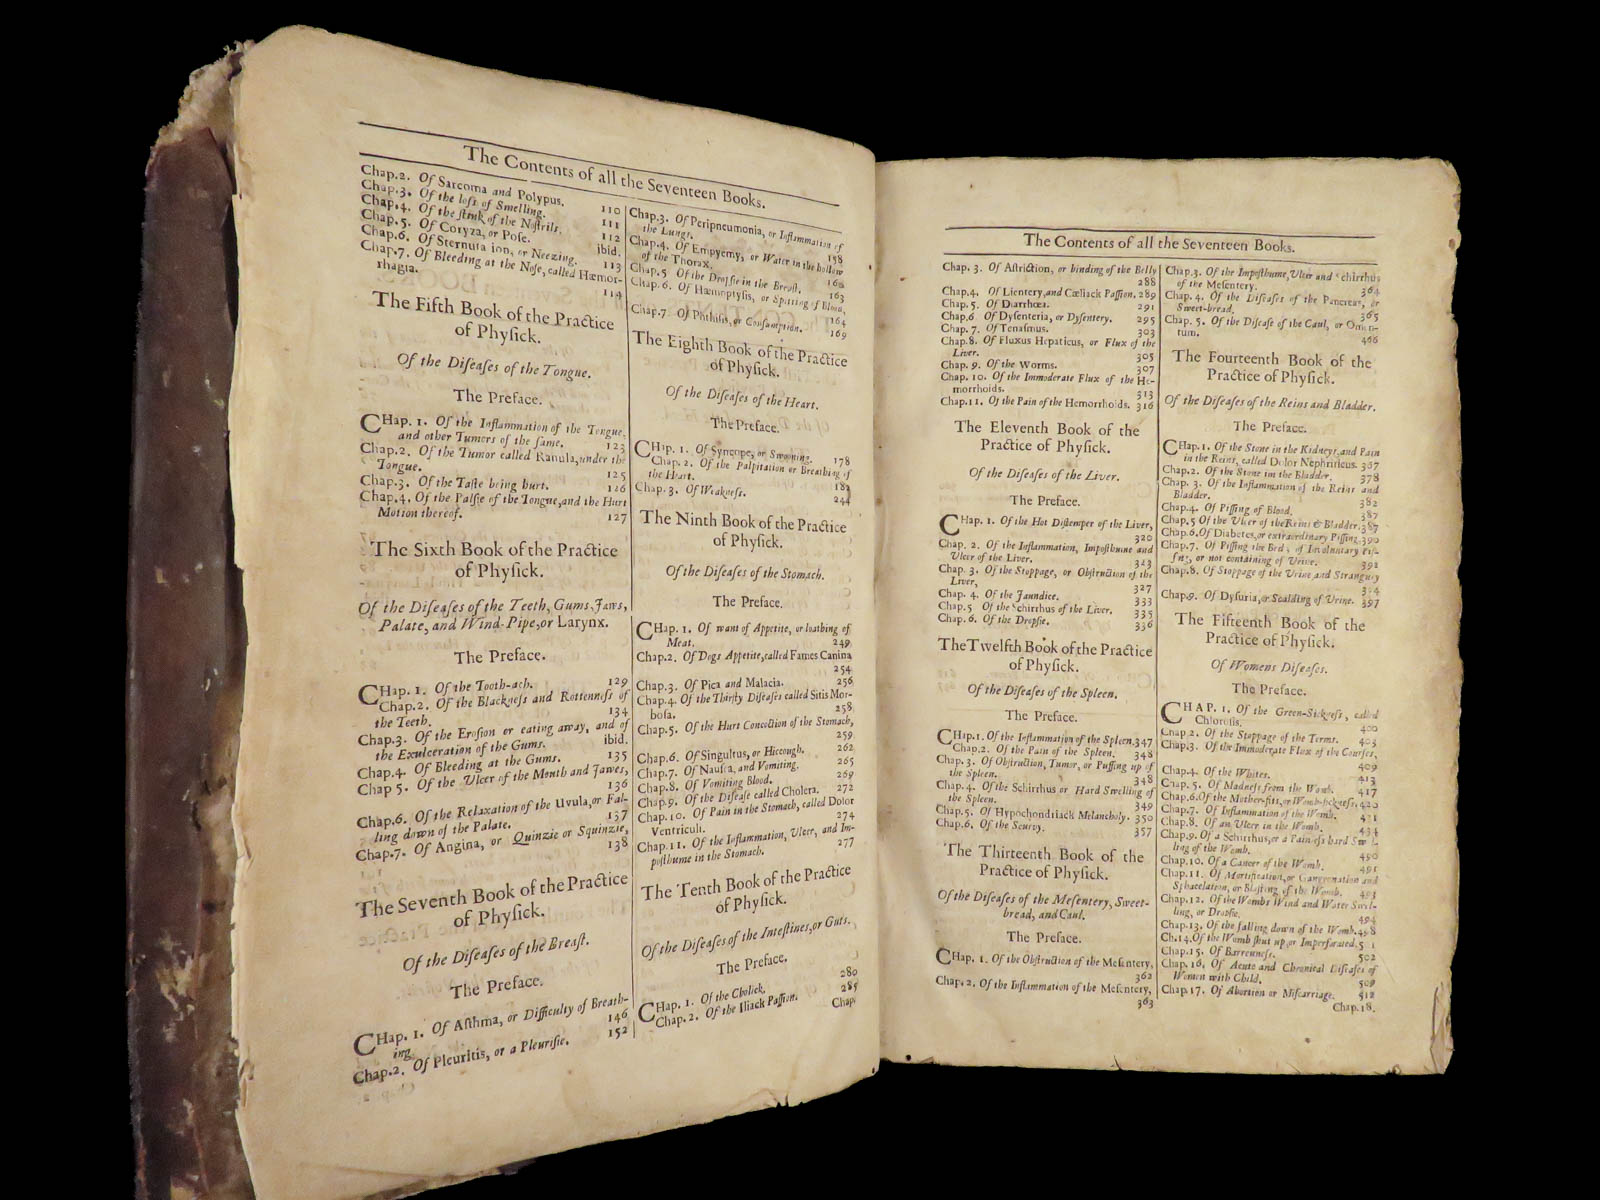 The Contents of all the Seventeen Books.
Chap.2. Of Sarcoma and Polypus. 110
Chap.3. Of the loſs of Smelling. 111
Chap.4. Of the ſtink of the Noſtrils. 112
Chap.5. Of Coryza, or Poſe. ibid.
Chap.6. Of Sternuta ion, or Neezing. 113
Chap.7. Of Bleeding at the Noſe, called Hæmor-
rhagia. 114
The Fifth Book of the Practice
of Phyſick.
Of the Diſeaſes of the Tongue.
The Preface.
CHap. 1. Of the Inflammation of the Tongue,
and other Tumors of the ſame. 123
Chap.2. Of the Tumor called Ranula, under the
Tongue. 125
Chap.3. Of the Taſte being hurt. 126
Chap.4. Of the Palſie of the Tongue, and the Hurt
Motion thereof. 127
The Sixth Book of the Practice
of Phyſick.
Of the Diſeaſes of the Teeth, Gums, Jaws,
Palate, and Wind-Pipe, or Larynx.
The Preface.
CHap. 1. Of the Tooth-ach. 129
Chap.2. Of the Blackneſs and Rottenneſs of
the Teeth. 134
Chap.3. Of the Eroſion or eating away, and of
the Exulceration of the Gums. ibid.
Chap.4. Of Bleeding at the Gums. 135
Chap 5. Of the Ulcer of the Mouth and Jawes,
136
Chap.6. Of the Relaxation of the Uvula, or Fal-
ling down of the Palate. 137
Chap.7. Of Angina, or Quinzie or Squinzie,
138
The Seventh Book of the Practice
of Phyſick.
Of the Diſeaſes of the Breaſt.
The Preface.
CHap. 1. Of Aſthma, or Difficulty of Breath-
ing. 146
Chap.2. Of Pleuritis, or a Pleuriſie. 152
Chap.3. Of Peripneumonia, or Inflammation of
the Lungs. 158
Chap.4. Of Empyemy, or Water in the hollow
of the Thorax. 160
Chap.5 Of the Dropſie in the Breaſt. 163
Chap.6. Of Hæmoptyſis, or Spitting of Blood,
164
Chap.7. Of Phthiſis, or Conſumption. 169
The Eighth Book of the Practice
of Phyſick.
Of the Diſeaſes of the Heart.
The Preface.
CHap. 1. Of Syncope, or Swooning. 178
Chap.2. Of the Palpitation or Breathing of
the Heart. 182
Chap.3. Of Weakneſs. 244
The Ninth Book of the Practice
of Phyſick.
Of the Diſeaſes of the Stomach.
The Preface.
CHap. 1. Of want of Appetite, or loathing of
Meat. 249
Chap.2. Of Dogs Appetite, called Fames Canina
254
Chap.3. Of Pica and Malacia. 256
Chap.4. Of the Thirſty Diſeaſes called Sitis Mor-
boſa. 258
Chap.5. Of the Hurt Concoction of the Stomach,
259
Chap.6. Of Singultus, or Hiccough. 262
Chap.7. Of Nauſea, and Vomiting. 265
Chap.8. Of Vomiting Blood. 269
Chap.9. Of the Diſeaſe called Cholera. 272
Chap.10. Of Pain in the Stomach, called Dolor
Ventriculi. 274
Chap.11. Of the Inflammation, Ulcer, and Im-
poſthume in the Stomach. 277
The Tenth Book of the Practice
of Phyſick.
Of the Diſeaſes of the Inteſtines, or Guts.
The Preface.
CHap. 1. Of the Cholick. 280
Chap.2. Of the Iliack Paſſion. 285
Chap.
The Contents of all the Seventeen Books.
Chap. 3. Of Aſtriction, or binding of the Belly
288
Chap.4. Of Lientery, and Cæliack Paſſion, 289
Chap. 5. Of Diarrhœa. 291
Chap.6 Of Dyſenteria, or Dyſentery. 295
Chap. 7. Of Tenaſmus. 303
Chap.8. Of Fluxus Hepaticus, or Flux of the
Liver. 305
Chap. 9. Of the Worms. 307
Chap. 10. Of the Immoderate Flux of the He-
morrhoids. 313
Chap.11. Of the Pain of the Hemorrhoids. 316
The Eleventh Book of the
Practice of Phyſick.
Of the Diſeaſes of the Liver.
The Preface.
CHap. 1. Of the Hot Diſtemper of the Liver,
320
Chap. 2. Of the Inflammation, Impoſthume and
Ulcer of the Liver. 323
Chap. 3. Of the Stoppage, or Obſtruction of the
Liver, 327
Chap. 4. Of the Jaundice. 333
Chap.5 Of the Schirrhus of the Liver. 335
Chap. 6. Of the Dropſie. 336
The Twelfth Book of the Practice
of Phyſick.
Of the Diſeaſes of the Spleen.
The Preface.
CHap.1. Of the Inflammation of the Spleen. 347
Chap.2. Of the Pain of the Spleen. 348
Chap. 3. Of Obſtruction, Tumor, or Puffing up of
the Spleen. 348
Chap.4. Of the Schirrhus or Hard Swelling of
the Spleen. 349
Chap.5. Of Hypochondriack Melancholy. 350
Chap.6. Of the Scurvy. 357
The Thirteenth Book of the
Practice of Phyſick.
Of the Diſeaſes of the Meſentery, Sweet-
bread, and Caul.
The Preface.
CHap. 1. Of the Obſtruction of the Meſentery,
362
Chap. 2. Of the Inflammation of the Meſentery,
363
Chap.3. Of the Impoſthume, Ulcer and Schirrhus
of the Meſentery. 364
Chap. 4. Of the Diſeaſes of the Pancreas, or
Sweet-bread. 365
Chap. 5. Of the Diſeaſe of the Caul, or Omen-
tum. 466
The Fourteenth Book of the
Practice of Phyſick.
Of the Diſeaſes of the Reins and Bladder.
The Preface.
CHap. 1. Of the Stone in the Kidneys, and Pain
in the Reins, called Dolor Nephriticus. 367
Chap.2. Of the Stone in the Bladder. 378
Chap. 3. Of the Inflammation of the Reins and
Bladder. 382
Chap.4. Of Piſſing of Blood. 387
Chap.5 Of the Ulcer of the Reins & Bladder. 387
Chap.6. Of Diabetes, or extraordinary Piſſing. 390
Chap.7. Of Piſſing the Bed, of Involuntary Piſ-
ſing, or not containing of Urine. 392
Chap.8. Of Stoppage of the Urine, and Strangury
Chap.9. Of Dyſuria, or Scalding of Urine. 397
The Fifteenth Book of the
Practice of Phyſick.
Of Womens Diſeaſes.
The Preface.
CHAP. 1. Of the Green-Sickneſs, called
Chloroſis. 400
Chap.2. Of the Stoppage of the Terms. 403
Chap.3. Of the Immoderate Flux of the Courſes,
409
Chap.4. Of the Whites. 413
Chap. 5. Of Madneſs from the Womb. 417
Chap.6. Of the Mother-fits, or Womb-ſickneſs. 420
Chap.7. Of Inflammation of the Womb. 431
Chap.8. Of an Ulcer in the Womb. 434
Chap.9. Of a Schirrhus, or a Painleſs hard Swel-
ling of the Womb. 490
Chap.10. Of a Cancer of the Womb. 491
Chap.11. Of Mortification, or Gangrenation and
Sphacelation, or Blaſting of the Womb. 493
Chap.12. Of the Wombs Wind and Water Swel-
ling, or Dropſie. 494
Chap.13. Of the falling down of the Womb. 498
Ch.14. Of the Womb ſhut up, or Imperforated, 5 1
Chap.15. Of Barrenneſs. 502
Chap. 16. Of Acute and Chronical Diſeaſes of
Women with Child. 509
Chap.17. Of Abortion or Miſcarriage. 512
Chap.18.